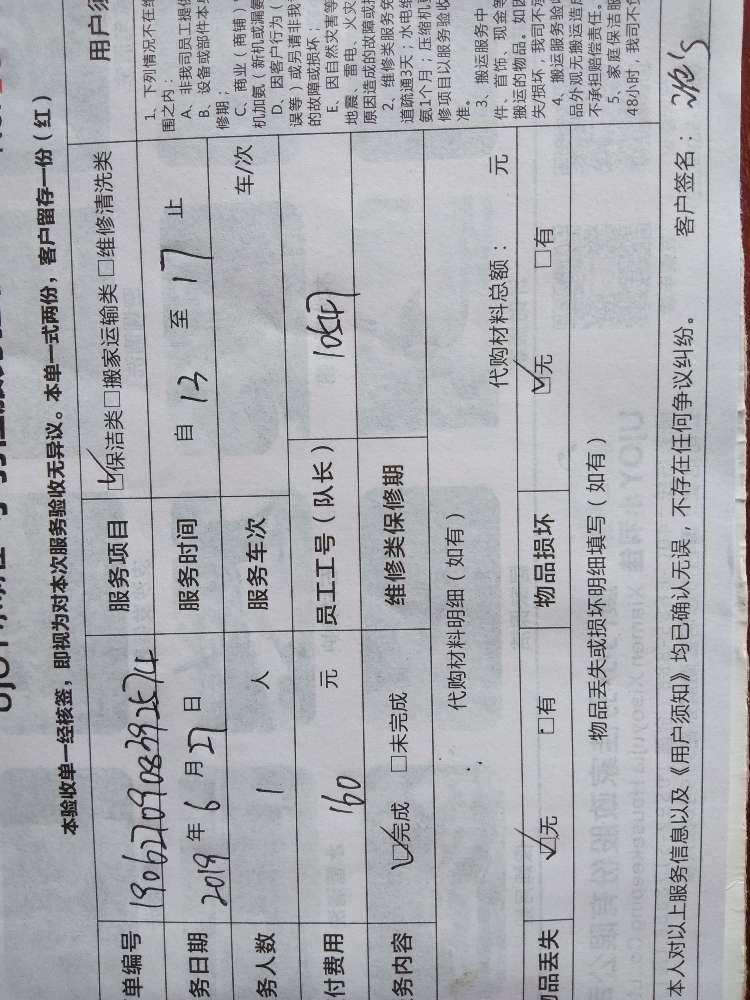 本验收单一经核签，即视为对本次服务验收无异议。本单一式两份，客户留存一份（红）
单编号 1906270908392574 服务项目 ☑保洁类□搬家运输类□维修清洗类
务日期 2019年6月27日 服务时间 自 13 至 17 止
务人数 1 人 服务车次 车/次
付费用 160 元 员工工号（队长） 10547
务内容 ☑完成 □未完成 维修类保修期
代购材料明细（如有） 代购材料总额： 元
物品丢失 ☑无 □有 物品损坏 ☑无 □有
物品丢失或损坏明细填写（如有）
本人对以上服务信息以及《用户须知》均已确认无误，不存在任何争议纠纷。 客户签名：
用户须
1、下列情况不在维
围之内：
A、非我司员工提供
B、设备或部件本身
修期；
C、商业（商铺）
机加氨（新机或漏氨
D、因客户行为（
误等）或另请非我
的故障或损坏；
E、因自然灾害等
地震、雷电、火灾
原因造成的故障或损
2、维修类服务免
道疏通3天；水电维
氨1个月；压缩机更
修项目以服务验收
准。
3、搬运服务中
件、首饰、现金等
搬运的物品。如因
失/损坏，我司不承
4、搬运服务验收
品外观无搬运造成
不承担赔偿责任。
5、家庭保洁服
48小时，我司不负